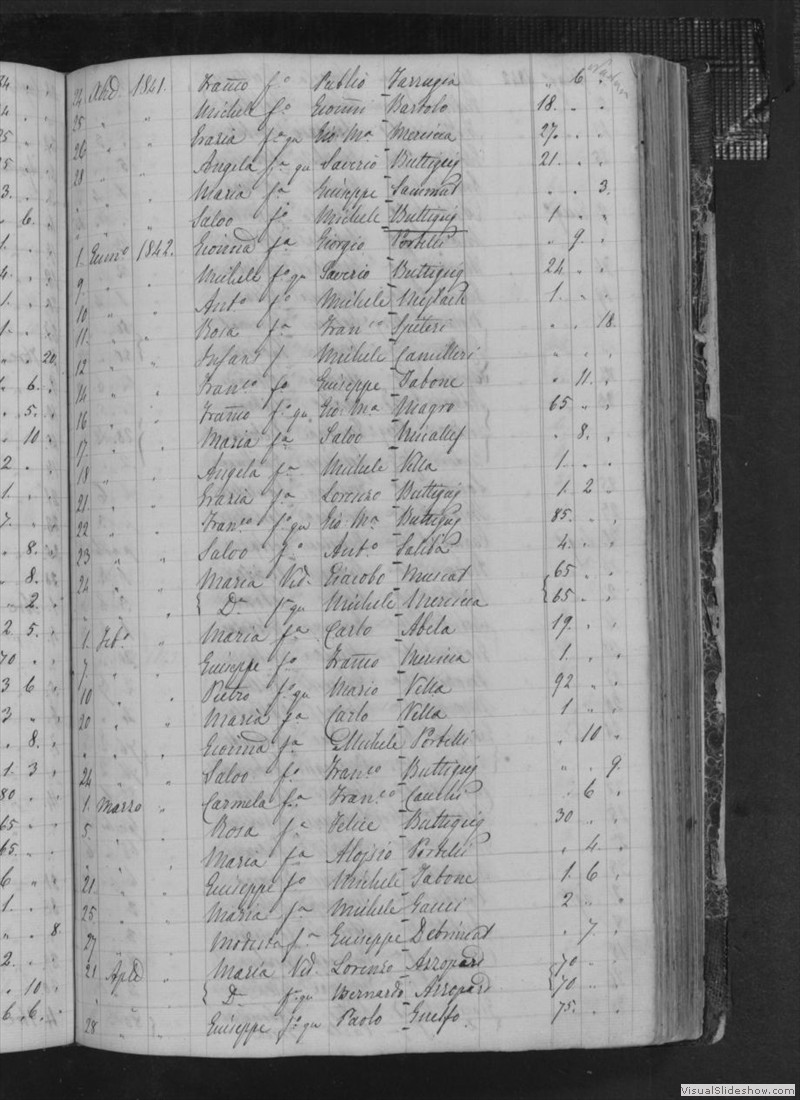 24 Xbre 1841. Franco fo Publio Farrugia " 6 "
25 " " Michele fo Gionni Bartolo 18. " "
26 " " Grazia fa qu Gio Ma Mercieca 27. " "
28 " " Angela fa qu Saverio Buttigieg 21. " "
" " " Maria fa Giuseppe Sammut " " 3.
" " " Salvo fo Michele Buttigieg 1. " "
1. Genno 1842. Gionna fa Giorgio Portelli " 9. "
9 " " Michele fo qu Saverio Buttigieg 24. " "
10 " " Anto fo Michele Mifsud 1. " "
11. " " Rosa fa Franco Spiteri " " 18.
12 " " Infant f Michele Camilleri " " "
14 " " Franco fo Giuseppe Tabone " 11. "
16 " " Franco fo qu Gio Ma Magro 65 " "
17. " " Maria fa Salvo Micallef " 8. "
18 " " Angela fa Michele Vella 1. " "
21. " " Grazia fa Lorenzo Buttigieg 1. 2 "
22 " " Franco fo qu Gio Ma Buttigieg 85. " "
23 " " Salvo fo Anto Saliba 4. " "
24 " " Maria Vid. Giacobo Muscat 65 " "
{ Da fa qu Michele Mercieca {65 " "
1. Febo " Maria fa Carlo Abela 19. " "
7. " " Giuseppe fo Franco Mercieca 1. " "
10 " " Pietro fo qu Mario Vella 92 " "
20 " " Maria fa Carlo Vella 1 " "
" " " Gionna fa Michele Portelli " 10 "
24 " " Salvo fo Franco Buttigieg " " 9.
1. Marzo " Carmela fa Franco Cauchi " 6 "
5. " " Rosa fa Felice Buttigieg 30 " "
" " " Maria fa Aloisio Portelli " 4. "
21. " " Giuseppe fo Michele Tabone 1. 6 "
25. " " Maria fa Michele Gauci 2 " "
27 " " Modesta fa Giuseppe Debrincat " 7. "
21 Aple " Maria Vid. Lorenzo Azzopardi 70 " "
{ Da fa qu Bernardo Azzopardi {70 " "
28 " " Giuseppe fo qu Paolo Grupo. 75. " "
VisualSlideshow.com